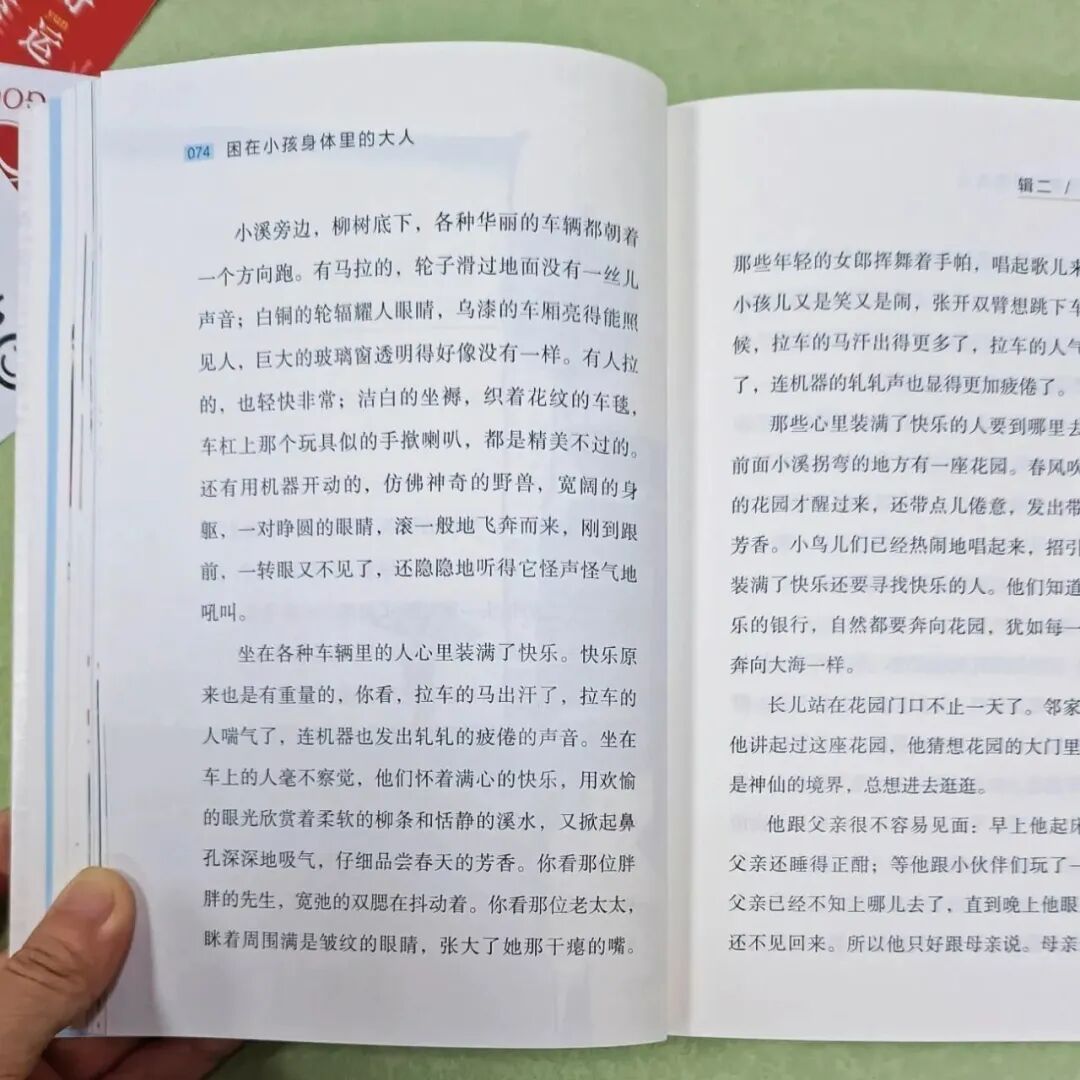 运
yun
074 困在小孩身体里的大人
小溪旁边，柳树底下，各种华丽的车辆都朝着
一个方向跑。有马拉的，轮子滑过地面没有一丝儿
声音；白铜的轮辐耀人眼睛，乌漆的车厢亮得能照
见人，巨大的玻璃窗透明得好像没有一样。有人拉
的，也轻快非常；洁白的坐褥，织着花纹的车毯，
车杠上那个玩具似的手揿喇叭，都是精美不过的。
还有用机器开动的，仿佛神奇的野兽，宽阔的身
躯，一对睁圆的眼睛，滚一般地飞奔而来，刚到跟
前，一转眼又不见了，还隐隐地听得它怪声怪气地
吼叫。
坐在各种车辆里的人心里装满了快乐。快乐原
来也是有重量的，你看，拉车的马出汗了，拉车的
人喘气了，连机器也发出轧轧的疲倦的声音。坐在
车上的人毫不察觉，他们怀着满心的快乐，用欢愉
的眼光欣赏着柔软的柳条和恬静的溪水，又掀起鼻
孔深深地吸气，仔细品尝春天的芳香。你看那位胖
胖的先生，宽弛的双腮在抖动着。你看那位老太太，
眯着周围满是皱纹的眼睛，张大了她那干瘪的嘴。
辑二 /
那些年轻的女郎挥舞着手帕，唱起歌儿来
小孩儿又是笑又是闹，张开双臂想跳下车
候，拉车的马汗出得更多了，拉车的人气
了，连机器的轧轧声也显得更加疲倦了。
那些心里装满了快乐的人要到哪里去
前面小溪拐弯的地方有一座花园。春风吹
的花园才醒过来，还带点儿倦意，发出带
芳香。小鸟儿们已经热闹地唱起来，招引
装满了快乐还要寻找快乐的人。他们知道
乐的银行，自然都要奔向花园，犹如每一
奔向大海一样。
长儿站在花园门口不止一天了。邻家
他讲起过这座花园，他猜想花园的大门里
是神仙的境界，总想进去逛逛。
他跟父亲很不容易见面：早上他起床
父亲还睡得正酣；等他跟小伙伴们玩了一
父亲已经不知上哪儿去了，直到晚上他眼
还不见回来。所以他只好跟母亲说。母亲